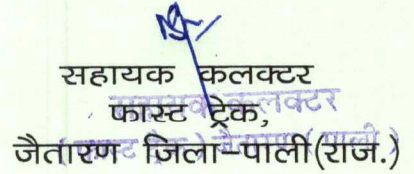 सहायक कलक्टर
फास्ट ट्रेक,
जैतारण जिला-पाली(राज.)
सहायक कलक्टर
(फास्ट ट्रेक) जैतारण (पाली)